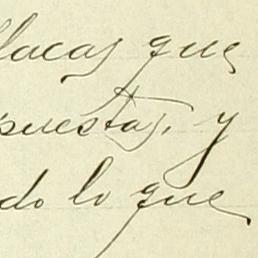 flacas que
puestas, y
do lo que